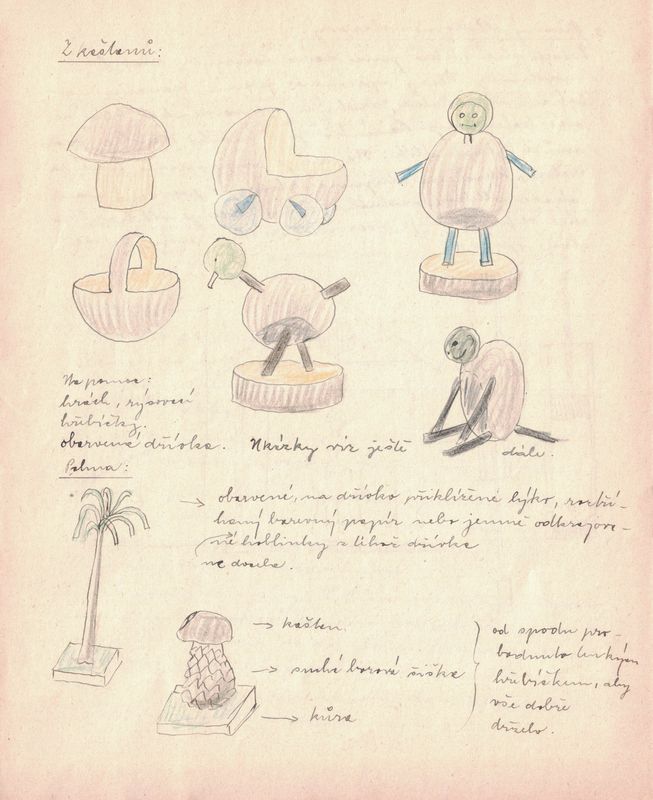 Z kaštanů:
Na pomoc:
hrách, rýsovací
hřebíčky.
obarvená dřívka. Ukázky viz ještě dále.
Palma:
→ obarvené, na dřívko přiklížené lýko, rozstří-
haný barevný papír nebo jemně odkrajova-
né hoblinky z dřívka
→ kaštan
→ suchá borová šiška
→ kůra
od spodu pro-
bodnuto tenkým
hřebíčkem, aby
vše dobře
drželo.